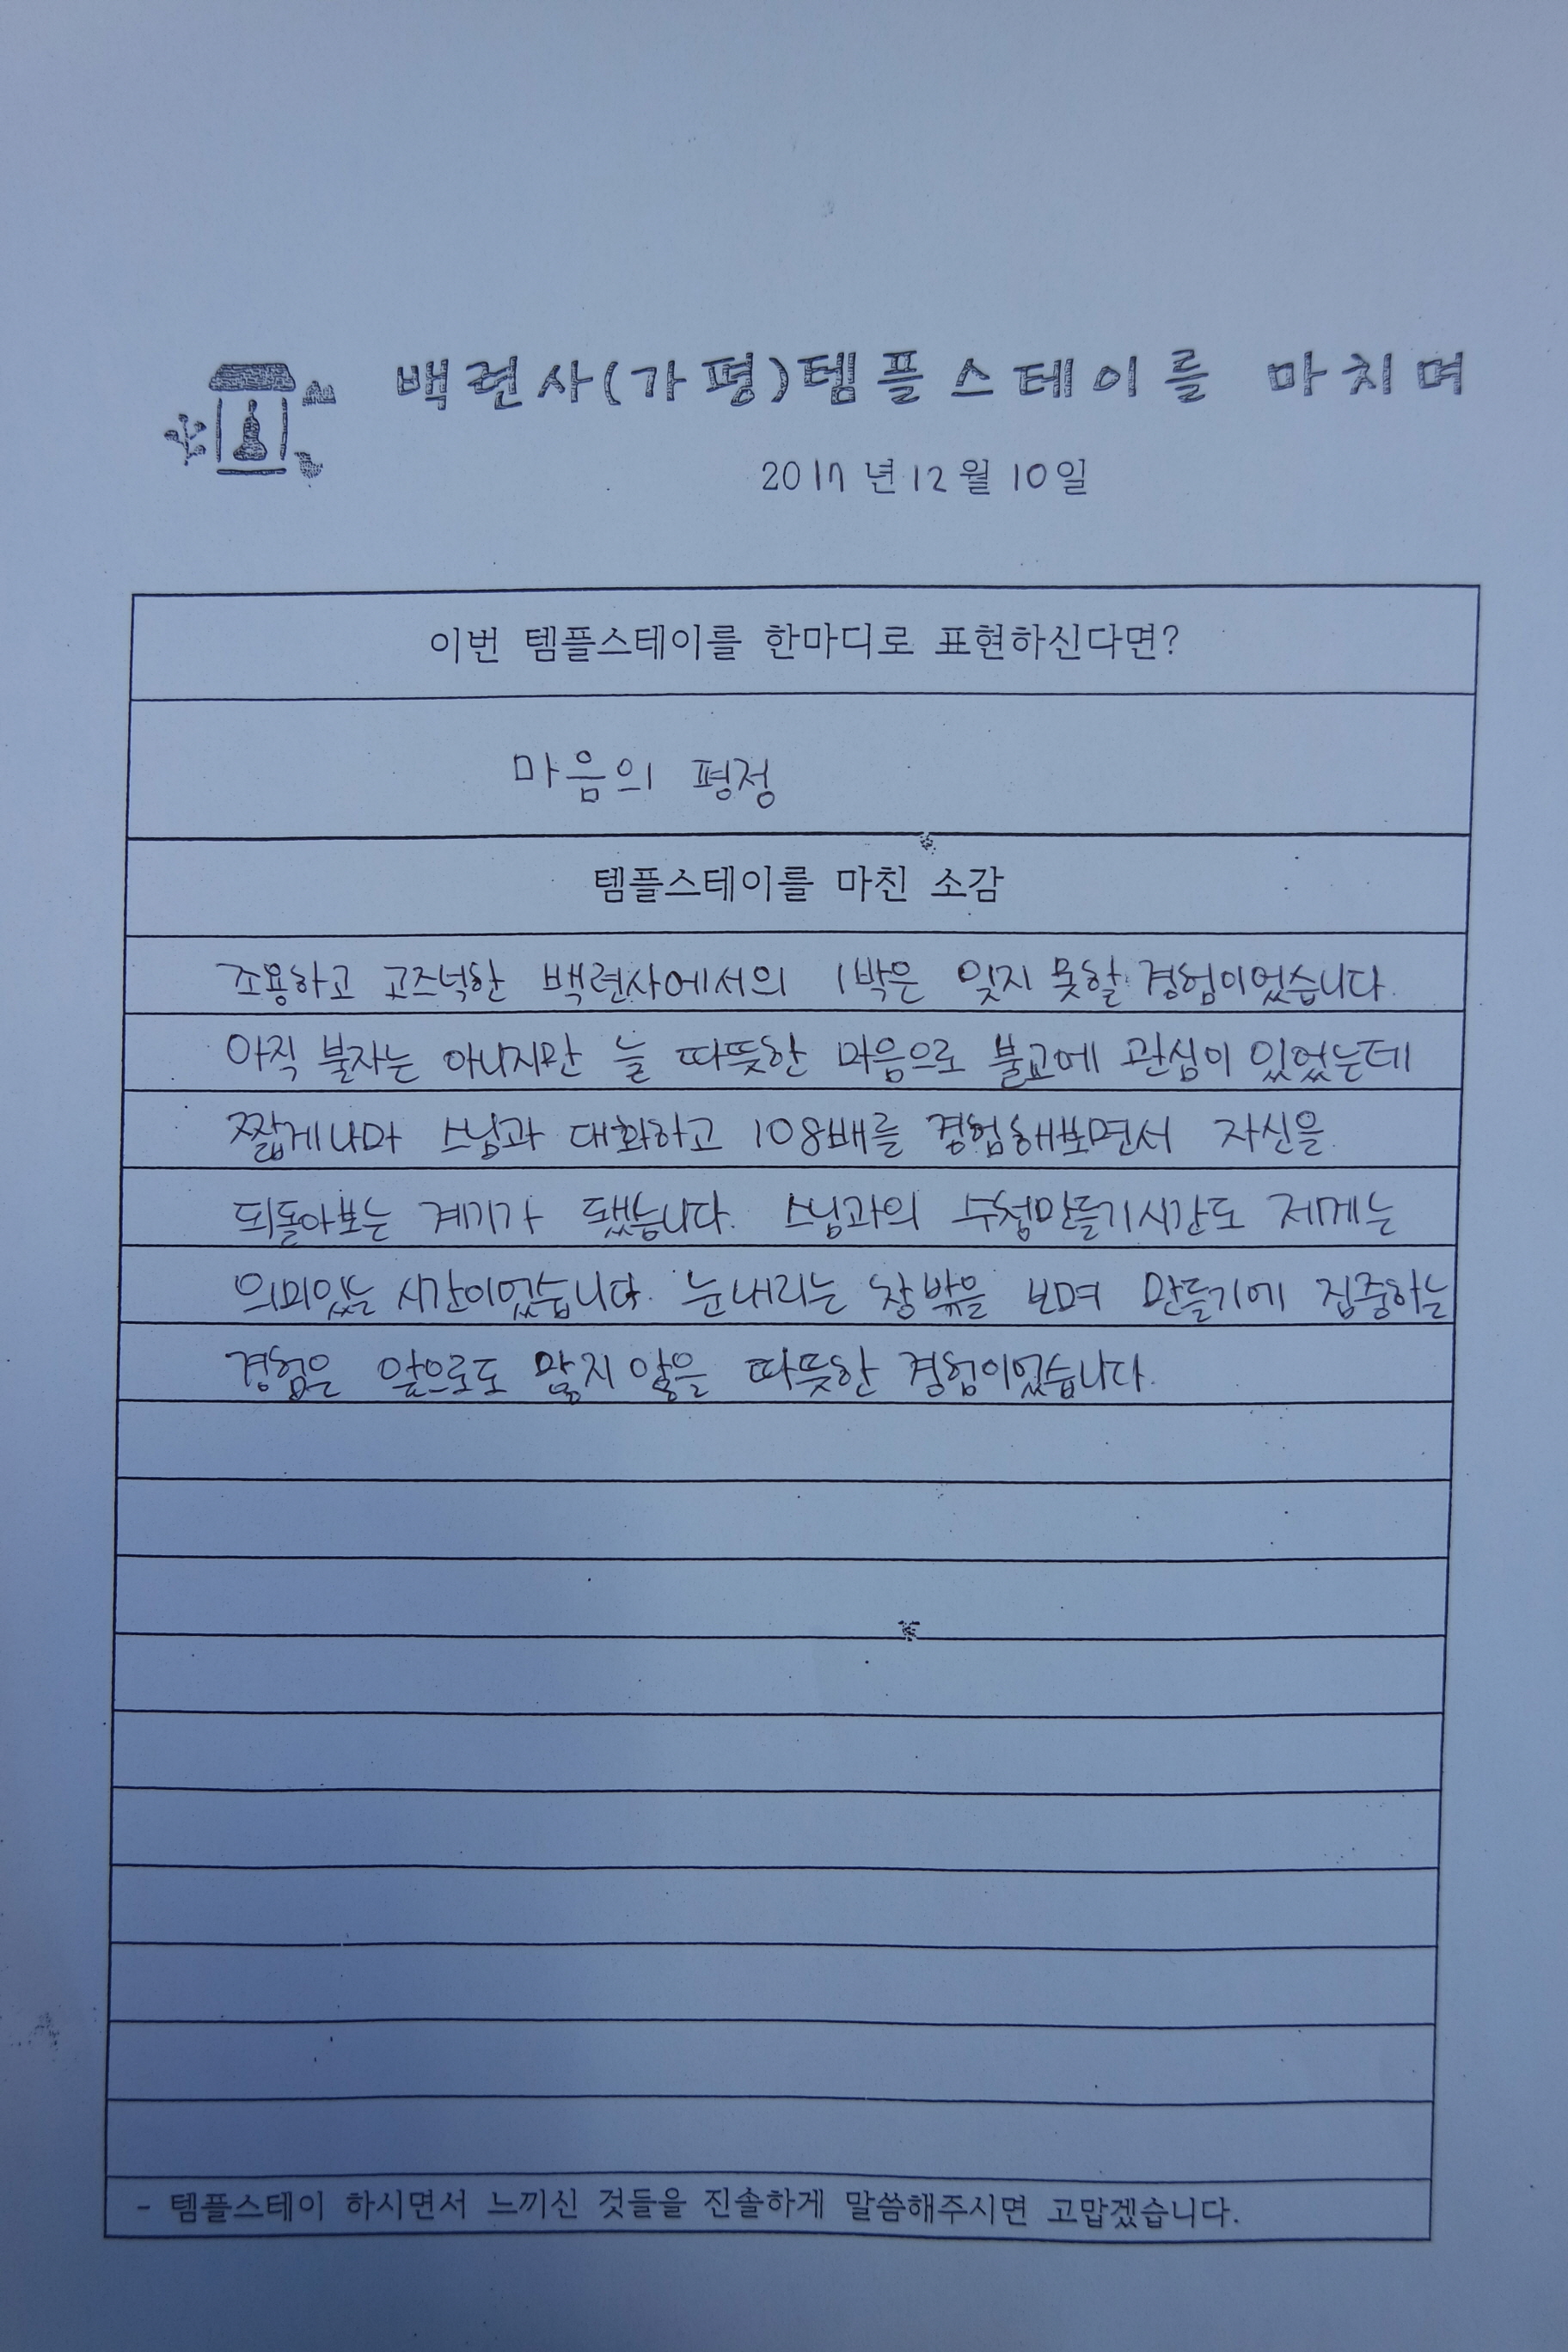 백련사(가평)템플스테이를 마치며
2017년 12월 10일
이번 템플스테이를 한마디로 표현하신다면?
마음의 평정
템플스테이를 마친 소감
조용하고 고즈넉한 백련사에서의 1박은 잊지 못할 경험이었습니다.
아직 불자는 아니지만 늘 따뜻한 마음으로 불교에 관심이 있었는데
짧게나마 스님과 대화하고 108배를 경험해보면서 자신을
되돌아보는 계기가 됐습니다. 스님과의 수첩만들기시간도 제게는
의미있는 시간이었습니다. 눈내리는 창밖을 보며 만들기에 집중하는
경험은 앞으로도 잃지 않을 따뜻한 경험이었습니다.
- 템플스테이 하시면서 느끼신 것들을 진솔하게 말씀해주시면 고맙겠습니다.